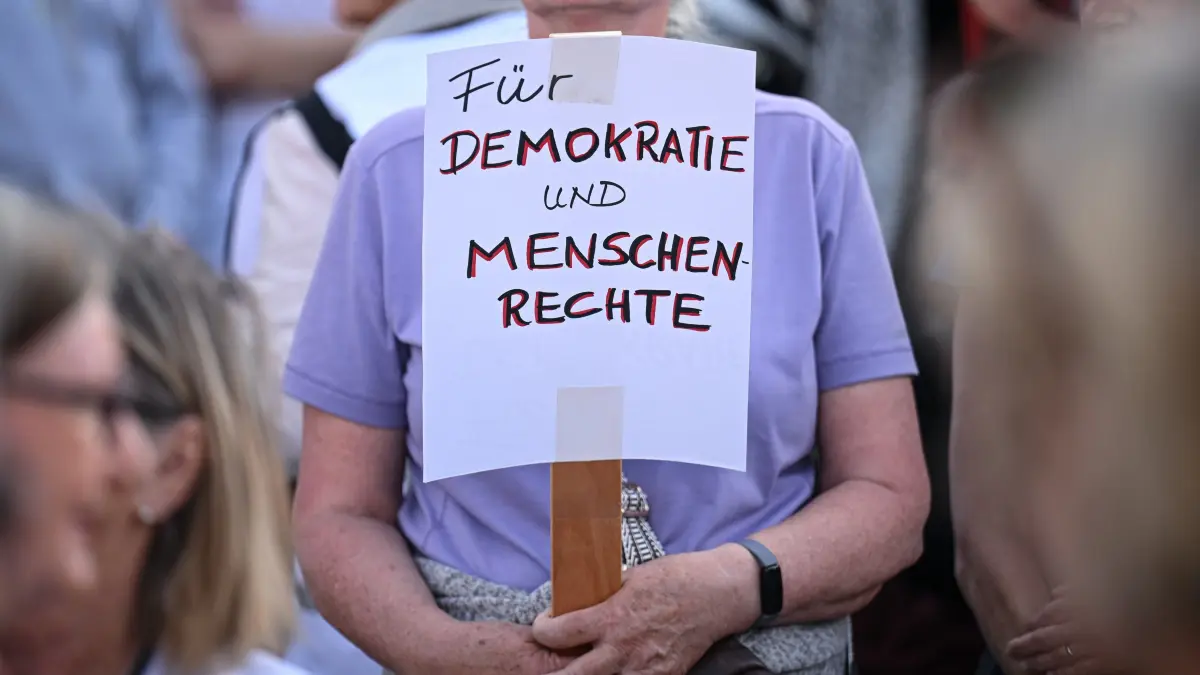 Für
DEMOKRATIE
UND
MENSCHEN-
RECHTE